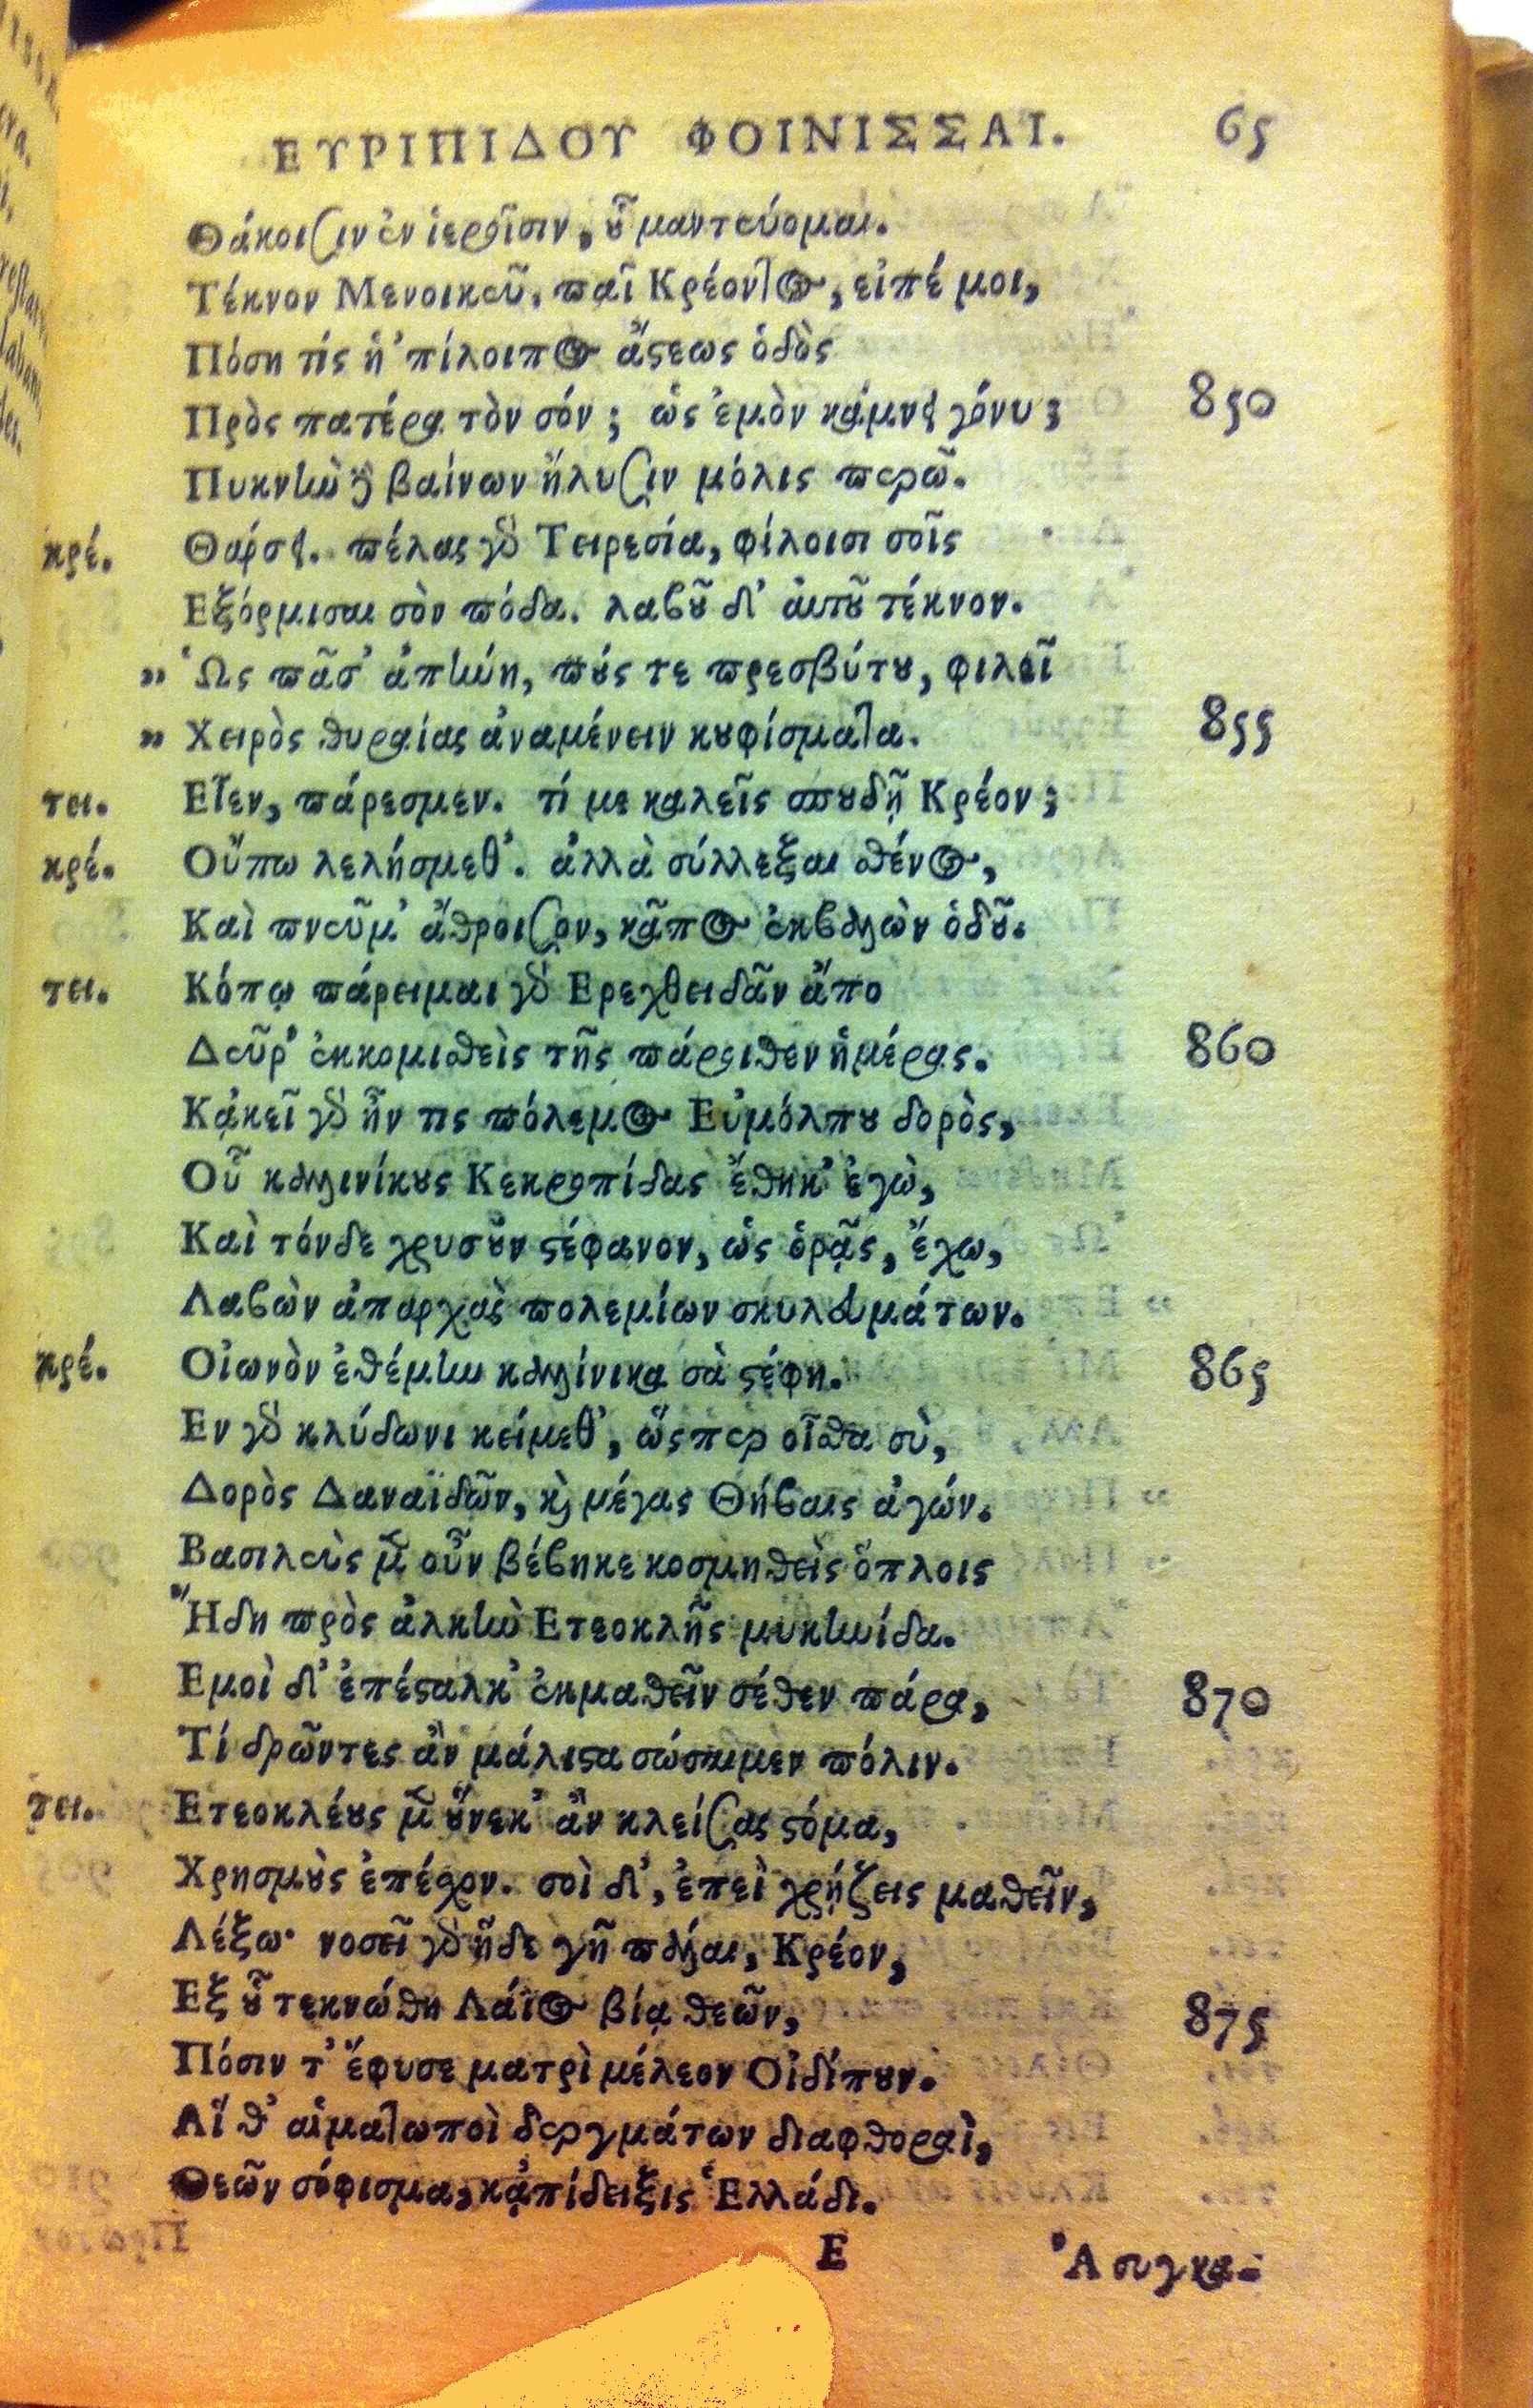 ΕΥΡΙΠΙΔΟΥ ΦΟΙΝΙΣΣΑΙ. 65
Θάκοισιν ἐν ἱεροῖσιν, οὗ μαντεύομαι.
Τέκνον Μενοικεῦ, παῖ Κρέοντος, εἰπέ μοι,
Πόση τίς ἡ ᾿πίλοιπος ἄστεως ὁδὸς
Πρὸς πατέρα τὸν σόν; ὡς ἐμὸν κάμνει γόνυ; 850
Πυκνὴν δὲ βαίνων ἤλυσιν μόλις περῶ.
κρέ. Θάρσει. πέλας γὰρ Τειρεσία, φίλοισι σοῖς
Εξόρμισαι σὸν πόδα. λαβοῦ δ᾿ αὐτοῦ τέκνον.
„ Ὡς πᾶσ᾿ ἀπήνη, ποὺς τε πρεσβύτου, φιλεῖ
„ Χειρὸς θυραίας ἀναμένειν κουφίσματα. 855
τει. Εἶεν, πάρεσμεν. τί με καλεῖς σπουδῇ Κρέον;
κρέ. Οὔπω λελήσμεθ᾿. ἀλλὰ σύλλεξαι σθένος,
Καὶ πνεῦμ᾿ ἄθροισον, κᾶπος ἐκβαλὼν ὁδοῦ.
τει. Κόπῳ πάρειμαι γὰρ Ερεχθειδᾶν ἄπο
Δεῦρ᾿ ἐκκομισθεὶς τῆς πάροιθεν ἡμέρας. 860
Κᾀκεῖ γὰρ ἦν τις πόλεμος Εὐμόλπου δορὸς,
Οὗ καλλινίκους Κεκροπίδας ἔθηκ᾿ ἐγὼ,
Καὶ τόνδε χρυσοῦν στέφανον, ὡς ὁρᾷς, ἔχω,
Λαβὼν ἀπαρχὰς πολεμίων σκυλευμάτων.
κρέ. Οἰωνὸν ἐθέμην καλλίνικα σὰ στέφη. 865
Εν γὰρ κλύδωνι κείμεθ᾿, ὥσπερ οἶσθα σὺ,
Δορὸς Δαναϊδῶν, καὶ μέγας Θήβαις ἀγών.
Βασιλεὺς μὲν οὖν βέβηκε κοσμηθεὶς ὅπλοις
Ἤδη πρὸς ἀλκὴν Ετεοκλῆς μυκηνίδα.
Εμοὶ δ᾿ ἐπέσταλκ᾿ ἐκμαθεῖν σέθεν πάρα, 870
Τί δρῶντες ἂν μάλιστα σώσαιμεν πόλιν.
τει. Ετεοκλέους μὲν οὕνεκ᾿ ἂν κλείσας στόμα,
Χρησμοὺς ἐπέσχον. σοὶ δ᾿, ἐπεὶ χρῄζεις μαθεῖν,
Λέξω· νοσεῖ γὰρ ἥδε γῆ πάλαι, Κρέον,
Εξ οὗ τεκνώθη Λάϊος βίᾳ θεῶν, 875
Πόσιν τ᾿ ἔφυσε ματρὶ μέλεον Οἰδίπουν.
Αἵ θ᾿ αἱματωποὶ δεργμάτων διαφθοραὶ,
Θεῶν σόφισμα, κᾀπίδειξις Ἑλλάδι.
Ε Ἃ συγκα-